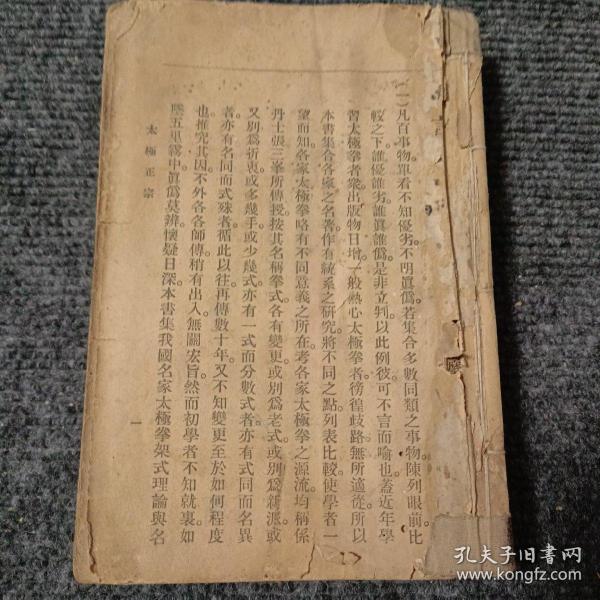 (一)凡百事物。單看不知優劣。不明眞僞。若集合多數同類之事物。陳列眼前。比
較之下。誰優誰劣。誰眞誰僞。是非立判。以此例彼。可不言而喻也。蓋近年學
習太極拳者衆。出版物日增。一般熱心太極拳者。徬徨歧路。無所適從。所以
本書集合各家之名著。作有統系之研究。將不同之點。列表比較。使學者一
望而知各家太極拳。略有不同意義之所在。考各家太極拳之源流。均稱係
丹士張三峯所傳授。按其名稱拳式。各有變更。或別爲老式。或別爲新派。或
又別爲折衷。或多幾手。或少幾式。亦有一式而分數式者。亦有式同而名異
者。亦有名同而式殊者。循此以往。再傳數十年。又不知變更至於如何程度
也。推究其因。不外各各師傳。稍有出入。無關宏旨。然而初學者。不知就裏。如
墜五里霧中。眞僞莫辨。懷疑日深。本書集我國名家太極拳架式理論與名
太極正宗
一
孔夫子旧书网
www.kongfz.com